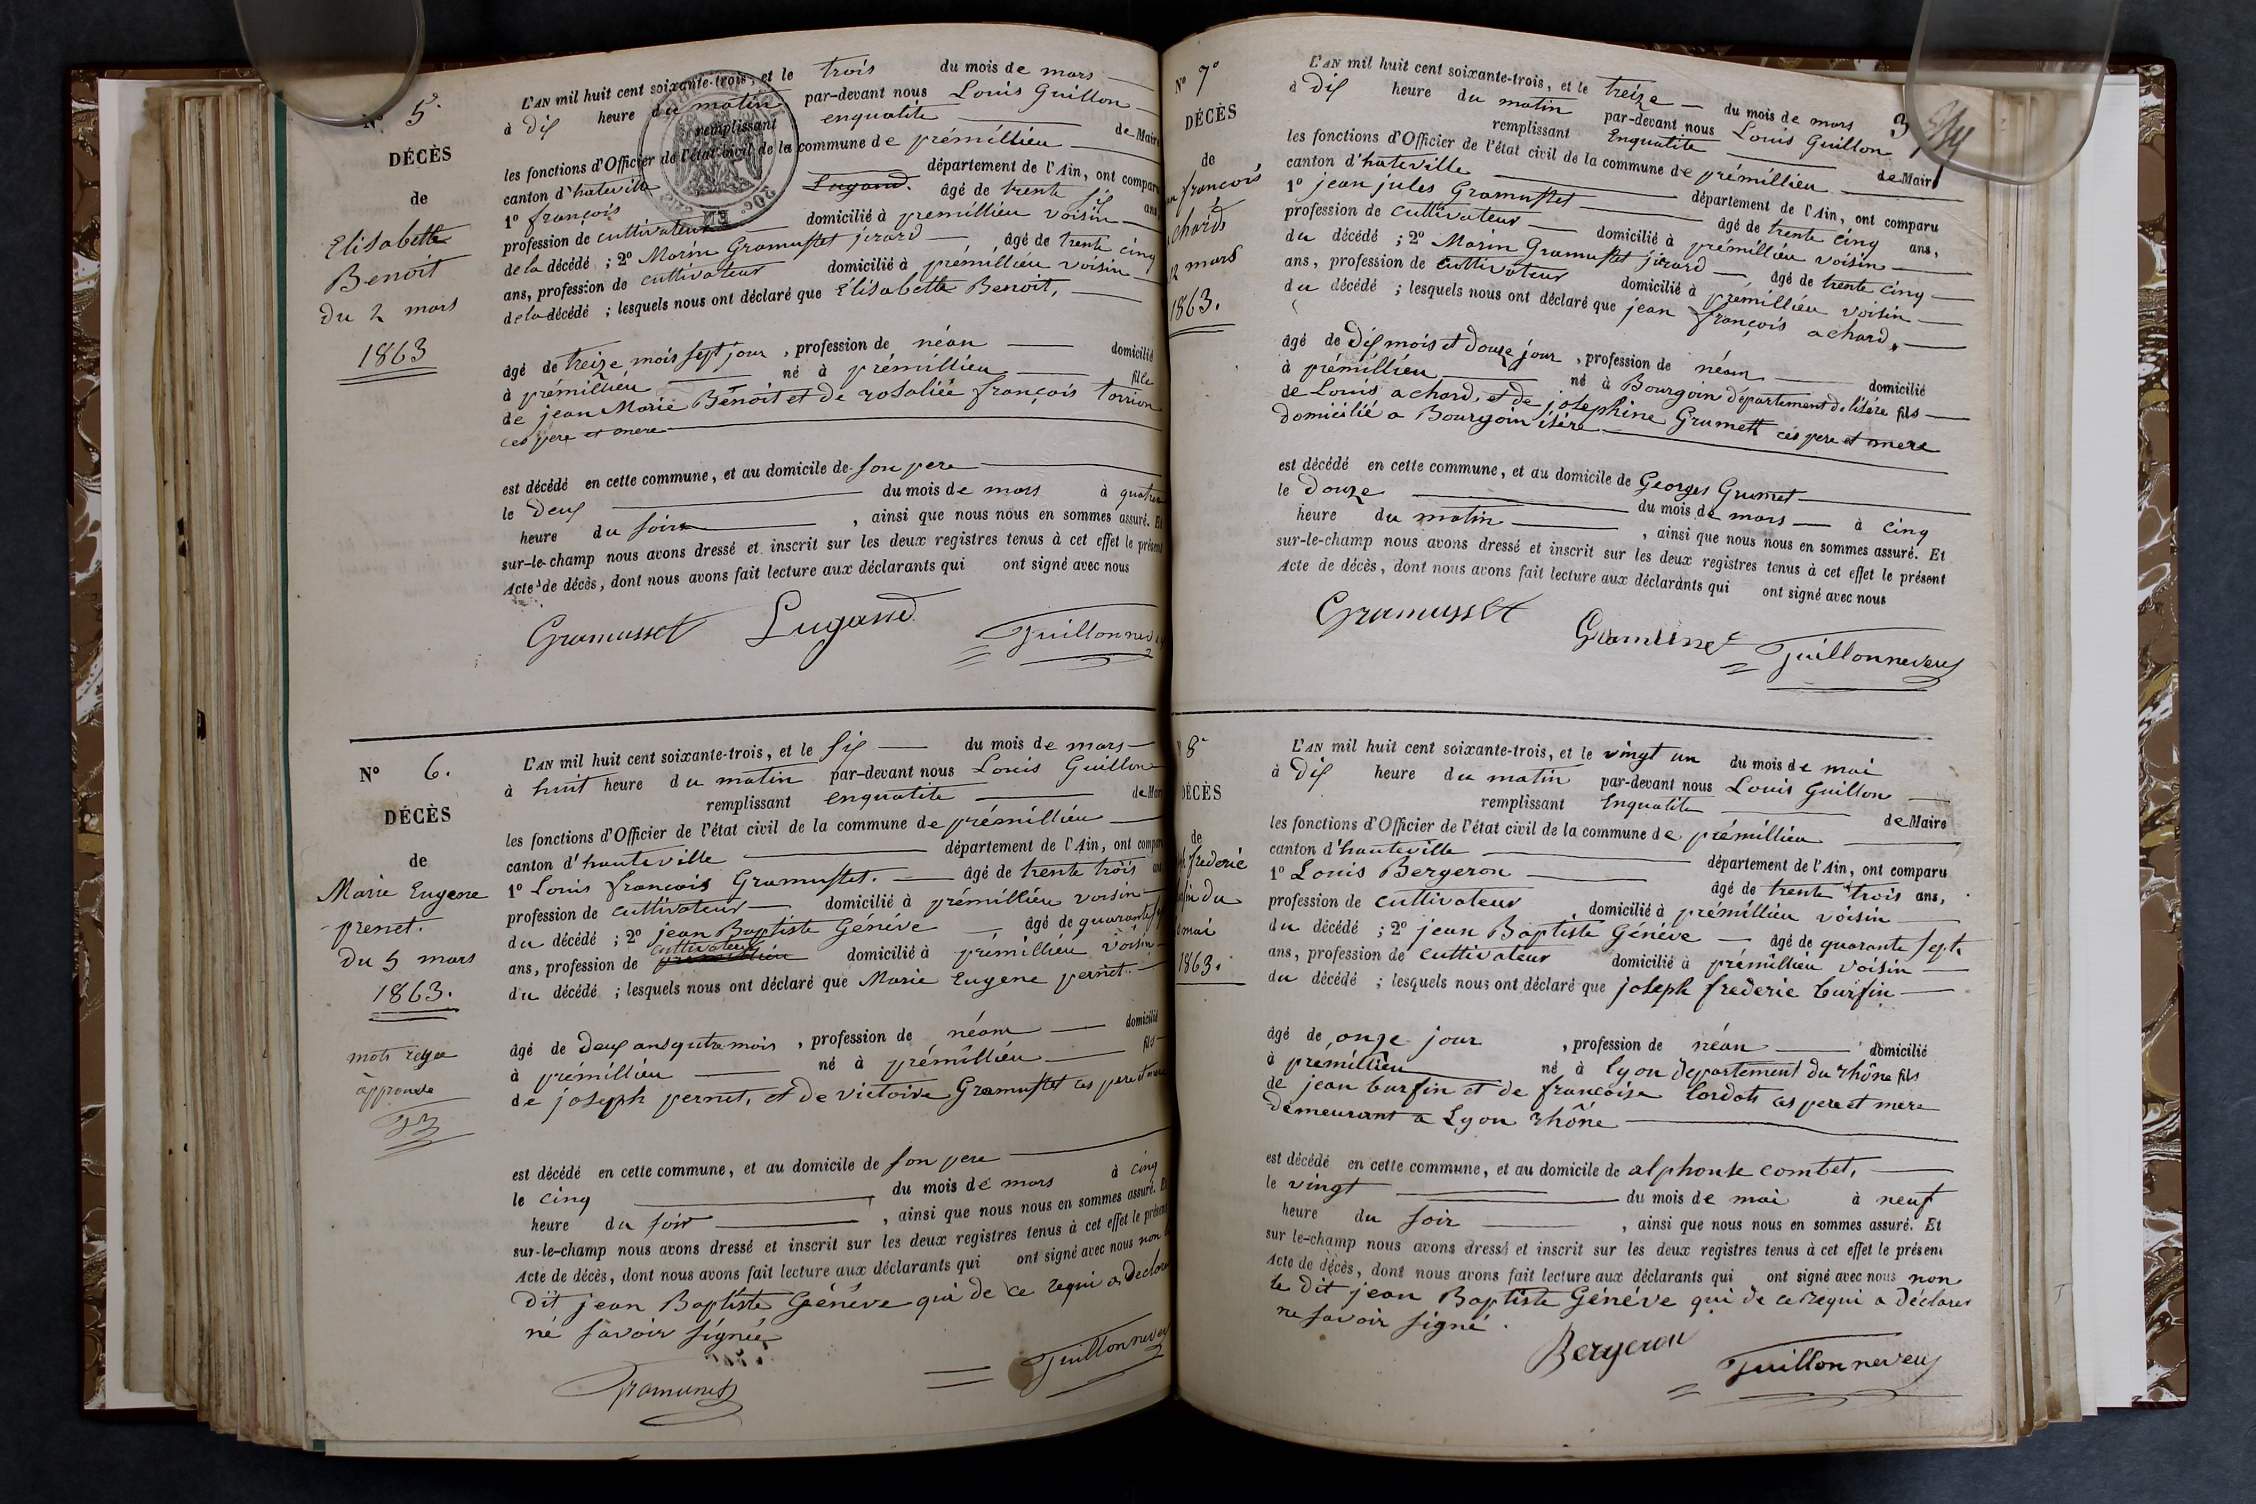 Nº 5.
DÉCÈS
de
Elisabette
Benoit
du 2 mars
1863
L'AN mil huit cent soixante-trois, et le trois du mois de mars
à dix heure du matin par-devant nous Louis Guillon
remplissant enqualité de Maire
les fonctions d'Officier de l'état civil de la commune de prémillieu
canton d'hateville département de l'Ain, ont comparu
1º françois Lugand. âgé de trente six ans,
profession de cultivateur domicilié à premillieu voisin
de la décédé ; 2º Marin Gramusset jirard , âgé de trente cinq
ans, profession de cultivateur domicilié à prémillieu voisin
de la décédé ; lesquels nous ont déclaré que Elisabette Benoit,
âgé de treize mois sept jour , profession de néan domicilié
à prémillieu né à prémillieu fille
de jean Marie Benoit et de rosaliée françois torrion
ces pere et mere
est décédé en cette commune, et au domicile de son pere
le deux du mois de mars à quatre
heure du soir , ainsi que nous nous en sommes assuré. Et
sur-le-champ nous avons dressé et inscrit sur les deux registres tenus à cet effet le présent
Acte de décès, dont nous avons fait lecture aux déclarants qui ont signé avec nous
Gramusset Lugand Guillon neveu
Nº 6.
DÉCÈS
de
Marie Eugene
pernet.
du 5 mars
1863.
mots reyé
approuvé
L'AN mil huit cent soixante-trois, et le six du mois de mars
à huit heure du matin par-devant nous Louis Guillon
remplissant enqualité de Maire
les fonctions d'Officier de l'état civil de la commune de prémillieu
canton d'hauteville département de l'Ain, ont comparu
1º Louis françois Gramusset. âgé de trente trois ans
profession de cultivateur domicilié à prémillieu voisin
du décédé ; 2º jean Baptiste Généve , âgé de quarante
ans, profession de cultivateur domicilié à prémillieu voisin
du décédé ; lesquels nous ont déclaré que Marie Eugene pernet.
âgé de deux ans quatre mois , profession de néan domicilié
à prémillieu né à prémillieu fils
de joseph pernet, et de victoire Gramusset ces pere et mere
est décédé en cette commune, et au domicile de son pere
le cinq du mois de mars à cinq
heure du soir , ainsi que nous nous en sommes assuré. Et
sur-le-champ nous avons dressé et inscrit sur les deux registres tenus à cet effet le présent
Acte de décès, dont nous avons fait lecture aux déclarants qui ont signé avec nous non le
dit jean Baptiste Généve qui de ce requi a declarer
né savoir signée
Gramusset Guillon neveu
Nº 7º
DÉCÈS
de
françois
achard
12 mars
1863.
L'AN mil huit cent soixante-trois, et le treize du mois de mars
à dix heure du matin par-devant nous Louis Guillon
remplissant Enqualité de Maire
les fonctions d'Officier de l'état civil de la commune de prémillieu
canton d'hateville département de l'Ain, ont comparu
1º jean jules Gramusset âgé de trente cinq ans,
profession de cultivateur domicilié à prémillieu voisin
du décédé ; 2º Marin Gramusset jirard , âgé de trente cinq
ans, profession de cultivateur domicilié à prémillieu voisin
du décédé ; lesquels nous ont déclaré que jean françois achard,
âgé de dix mois et douze jour , profession de néan domicilié
à prémillieu né à Bourgoin département de lisére fils
de Louis achard, et de josephine Grumett ces pere et mere
domicilié a Bourgoin isére
est décédé en cette commune, et au domicile de Georges Grumet
le douze du mois de mars à cinq
heure du matin , ainsi que nous nous en sommes assuré. Et
sur-le-champ nous avons dressé et inscrit sur les deux registres tenus à cet effet le présent
Acte de décès, dont nous avons fait lecture aux déclarants qui ont signé avec nous
Gramusset Gramusset Guillon neveu
8º
DÉCÈS
de
frederic
burfin du
mai
1863.
L'AN mil huit cent soixante-trois, et le vingt un du mois de mai
à dix heure du matin par-devant nous Louis Guillon
remplissant Enqualité de Maire
les fonctions d'Officier de l'état civil de la commune de prémillieu
canton d'hauteville département de l'Ain, ont comparu
1º Louis Bergeron âgé de trente trois ans,
profession de cultivateur domicilié à prémillieu voisin
du décédé ; 2º jean Baptiste Généve , âgé de quarante sept
ans, profession de cultivateur domicilié à prémillieu voisin
du décédé ; lesquels nous ont déclaré que joseph frederic burfin
âgé de onze jour , profession de néan domicilié
à premillieu né à lyon département du rhône fils
de jean burfin et de francoise Cordots ces pere et mere
demeurant a Lyon rhône
est décédé en cette commune, et au domicile de alphonse combet,
le vingt du mois de mai à neuf
heure du soir , ainsi que nous nous en sommes assuré. Et
sur le-champ nous avons dressé et inscrit sur les deux registres tenus à cet effet le présent
Acte de décès, dont nous avons fait lecture aux déclarants qui ont signé avec nous non
le dit jean Baptiste Généve qui de ce requi a déclarer
ne savoir signé.
Bergeron Guillon neveu